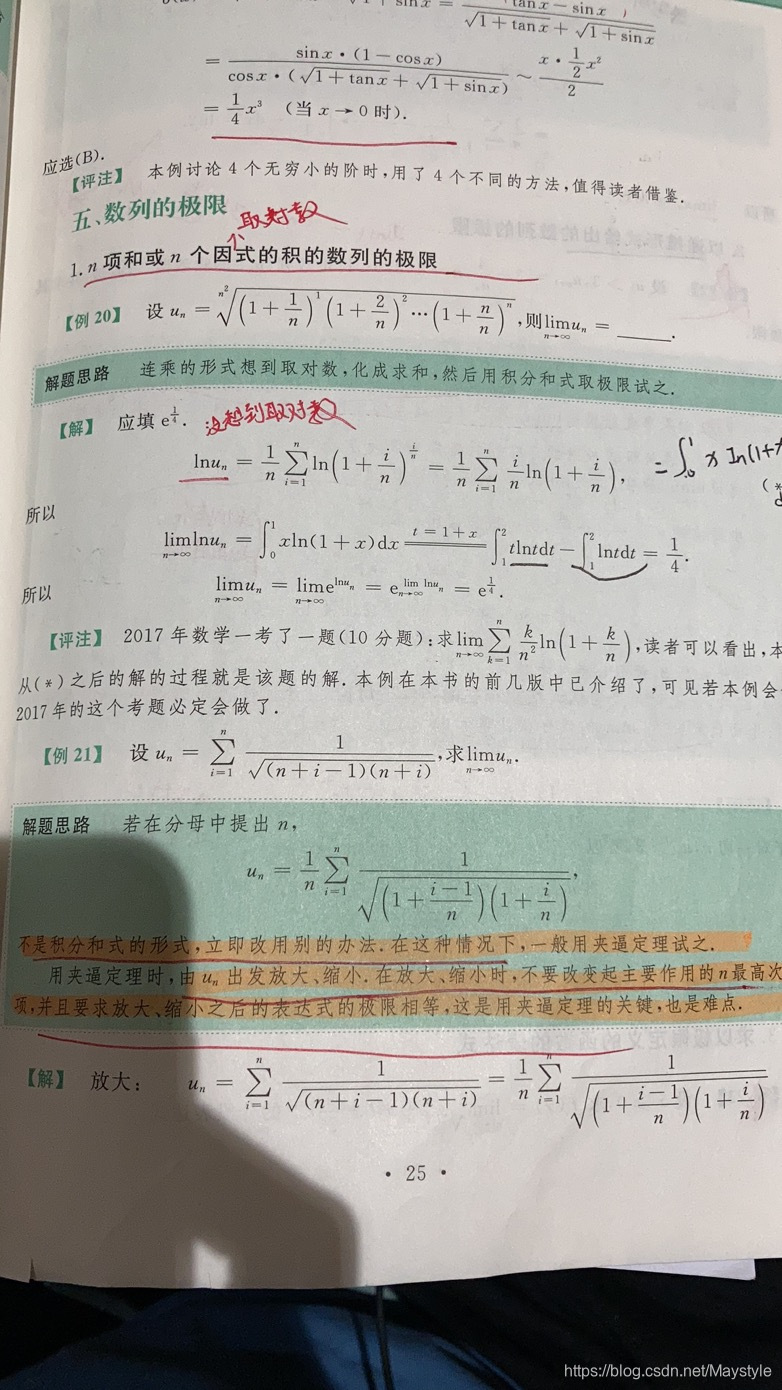 √1+sinx = tanx−sinx / (√1+tanx + √1+sinx)
= sinx·(1−cosx) / (cosx·(√1+tanx + √1+sinx)) ~ (x·½x²) / 2
= ¼x³ (当 x→0 时).
应选(B).
【评注】 本例讨论 4 个无穷小的阶时,用了 4 个不同的方法,值得读者借鉴.
五、数列的极限
取对数
1. n 项和或 n 个因式的积的数列的极限
【例 20】 设 uₙ = ⁿ²√((1+1/n)¹(1+2/n)²⋯(1+n/n)ⁿ),则 lim(n→∞) uₙ = ______.
解题思路 连乘的形式想到取对数,化成求和,然后用积分和式取极限试之.
【解】 应填 e^(1/4). 没想到取对数
lnuₙ = (1/n) ∑(i=1→n) ln(1+i/n)^(i/n) = (1/n) ∑(i=1→n) (i/n) ln(1+i/n), = ∫₀¹ x ln(1+x
(*
所以
lim(n→∞) lnuₙ = ∫₀¹ xln(1+x)dx ══(t=1+x)══ ∫₁² tlntdt − ∫₁² lntdt = 1/4.
所以 lim(n→∞) uₙ = lim(n→∞) e^(lnuₙ) = e^(lim(n→∞) lnuₙ) = e^(1/4).
【评注】 2017 年数学一考了一题(10 分题):求 lim(n→∞) ∑(k=1→n) (k/n²) ln(1+k/n),读者可以看出,本
从(*)之后的解的过程就是该题的解.本例在本书的前几版中已介绍了,可见若本例会
2017 年的这个考题必定会做了.
【例 21】 设 uₙ = ∑(i=1→n) 1/√((n+i−1)(n+i)),求 lim(n→∞) uₙ.
解题思路 若在分母中提出 n,
uₙ = (1/n) ∑(i=1→n) 1/√((1+(i−1)/n)(1+i/n)),
不是积分和式的形式,立即改用别的办法.在这种情况下,一般用夹逼定理试之.
用夹逼定理时,由 uₙ 出发放大、缩小.在放大、缩小时,不要改变起主要作用的 n 最高次
项,并且要求放大、缩小之后的表达式的极限相等,这是用夹逼定理的关键,也是难点.
【解】 放大: uₙ = ∑(i=1→n) 1/√((n+i−1)(n+i)) = (1/n) ∑(i=1→n) 1/√((1+(i−1)/n)(1+i/n))
· 25 ·
https://blog.csdn.net/Maystyle